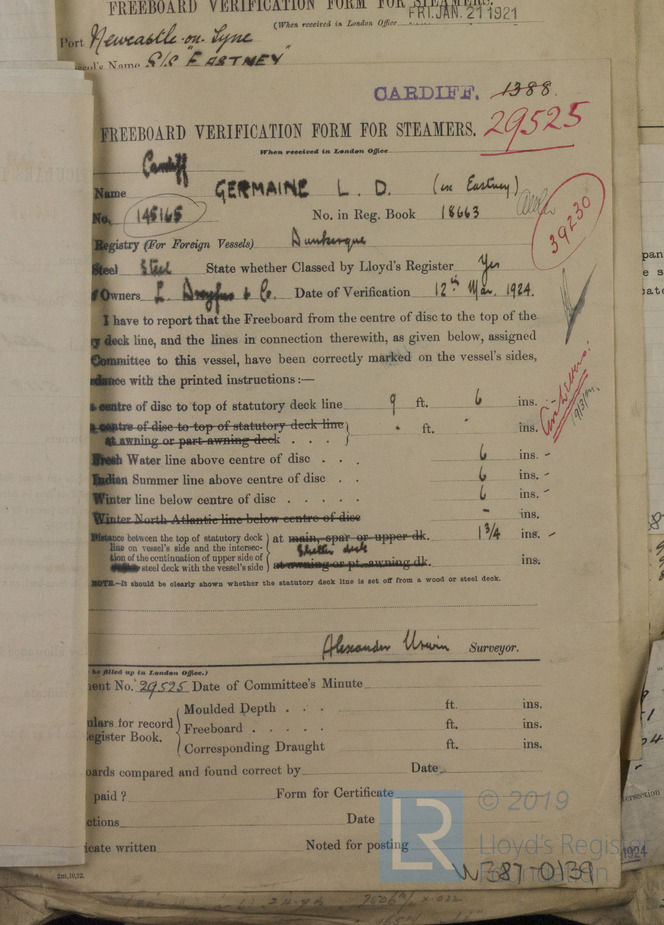 FREEBOARD VERIFICATION FORM FOR STEAMERS.
(When received in London Office FRI. JAN. 21 1921
Port Newcastle-on-Tyne
ssel's Name S/S "EASTNEY"
CARDIFF. 1388.
FREEBOARD VERIFICATION FORM FOR STEAMERS. 29525
When received in London Office
Cardiff
Name GERMAINE L. D. (ex Eastney)
No. 145165 No. in Reg. Book 18663
39230
Registry (For Foreign Vessels) Dunkerque
Steel Steel State whether Classed by Lloyd's Register Yes
Owners L. Dreyfus & Co. Date of Verification 12th Mar. 1924.
I have to report that the Freeboard from the centre of disc to the top of the
y deck line, and the lines in connection therewith, as given below, assigned
Committee to this vessel, have been correctly marked on the vessel's sides,
dance with the printed instructions :—
centre of disc to top of statutory deck line 9 ft. 6 ins. -
centre of disc to top of statutory deck line
at awning or part awning deck . . . - ft. - ins.
Fresh Water line above centre of disc . . . 6 ins. -
Indian Summer line above centre of disc . . 6 ins. -
Winter line below centre of disc . . . . . 6 ins. -
Winter North Atlantic line below centre of disc - ins.
Distance between the top of statutory deck
line on vessel's side and the intersec-
tion of the continuation of upper side of
steel deck with the vessel's side
at main, spar or upper dk. 1 3/4 ins. -
Shelter deck
at awning or pt. awning dk. ins.
NOTE.—It should be clearly shown whether the statutory deck line is set off from a wood or steel deck.
Alexander Urwin Surveyor.
be filled up in London Office.)
ent No. 29525 Date of Committee's Minute
ulars for record
egister Book.
Moulded Depth . . . ft. ins.
Freeboard . . . . . ft. ins.
Corresponding Draught ft. ins.
oards compared and found correct by Date
paid ? Form for Certificate
ctions Date
icate written Noted for posting
2m,10,12.
LR
© 2019
Lloyd's Register
Foundation
W387-0139
1924